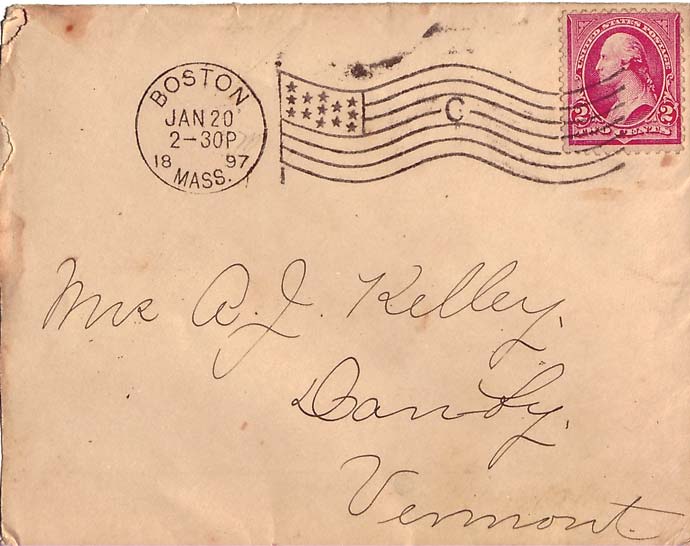 BOSTON
JAN 20
2-30P
18 97
MASS.
C
UNITED STATES POSTAGE
2 2
TWO CENTS
Mrs A. J. Kelley,
Danby,
Vermont.